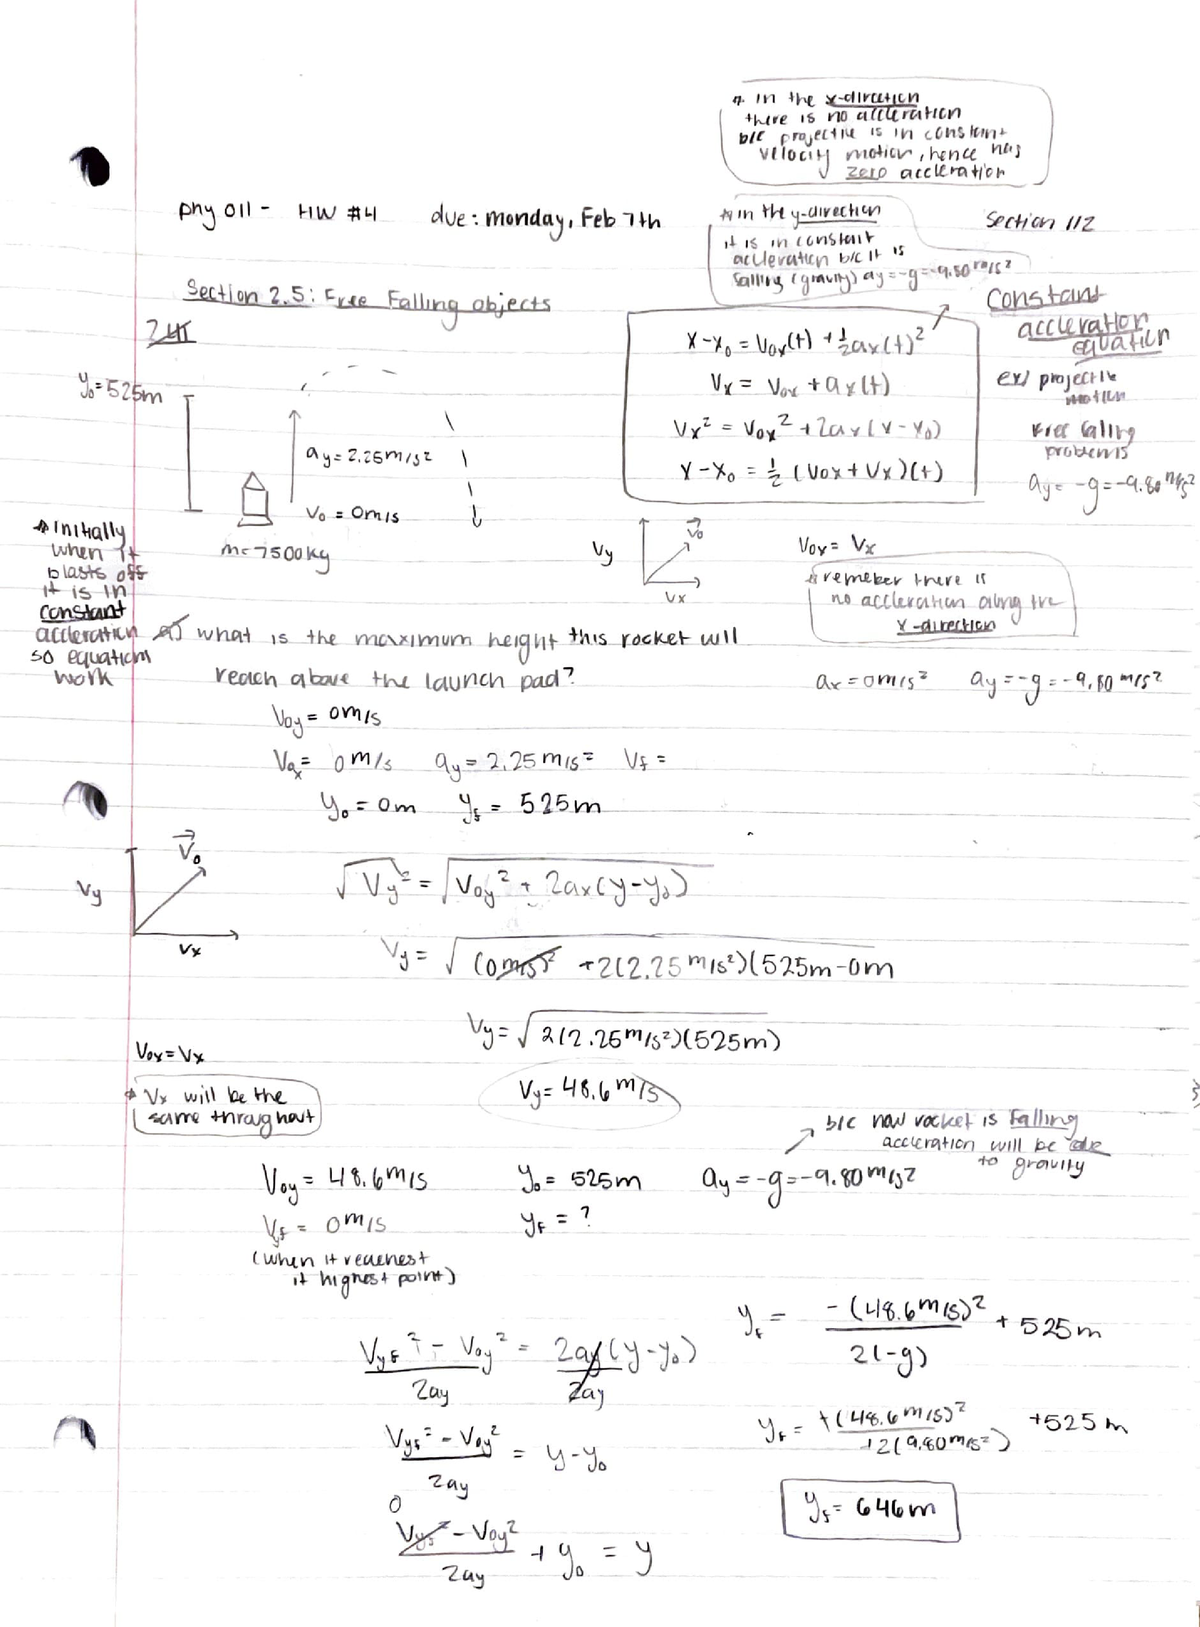 * in the x-direction
there is no accleration
b/c projectile is in constant
velocity motion, hence has
zero accleration
phy 011 - HW #4 due: monday, Feb 7th
* in the y-direction
it is in constant
accleration b/c it is
falling (gravity) ay = -g = -9.80 m/s²
Section 112
Section 2.5: Free Falling objects
constant
accleration
equation
ex/ projectile
motion
free falling
problems
ay = -g = -9.80 m/s²
x-x₀ = V₀x(t) + ½ax(t)²
Vx = V₀x + ax(t)
Vx² = V₀x² + 2ax(x-x₀)
x-x₀ = ½(V₀x + Vx)(t)
y₀ = 525m
ay = 2.25 m/s²
V₀ = 0m/s
m = 7500kg
* Initially
when it
blasts off
it is in
constant
accleration
so equations
work
Vy
V₀
Vx
V₀x = Vx
* remeber there is
no accleration along the
x-direction
a) what is the maximum height this rocket will
reach above the launch pad?
ax = 0m/s² ay = -g = -9.80 m/s²
V₀y = 0m/s
V₀x = 0m/s ay = 2.25 m/s² Vf =
y₀ = 0m yf = 525m
V₀
Vy
Vx
√Vy² = √V₀y² + 2ax(y-y₀)
Vy = √(0m/s)² + 2(2.25 m/s²)(525m-0m
Vy = √2(2.25m/s²)(525m)
V₀x = Vx
* Vx will be the
same throughout
Vy = 48.6 m/s
b/c now rocket is falling
accleration will be due
to gravity
V₀y = 48.6m/s y₀ = 525m ay = -g = -9.80m/s²
Vyf = 0m/s yf = ?
(when it reachest
it highest point)
Vyf² - V₀y² / 2ay = 2ay(y-y₀) / 2ay
Vyf² - V₀y² / 2ay = y-y₀
0
Vyf² - V₀y² / 2ay + y₀ = y
yf = -(48.6m/s)² / 2(-g) + 525m
yf = +(48.6m/s)² / +2(9.80m/s²) +525m
yf = 646m